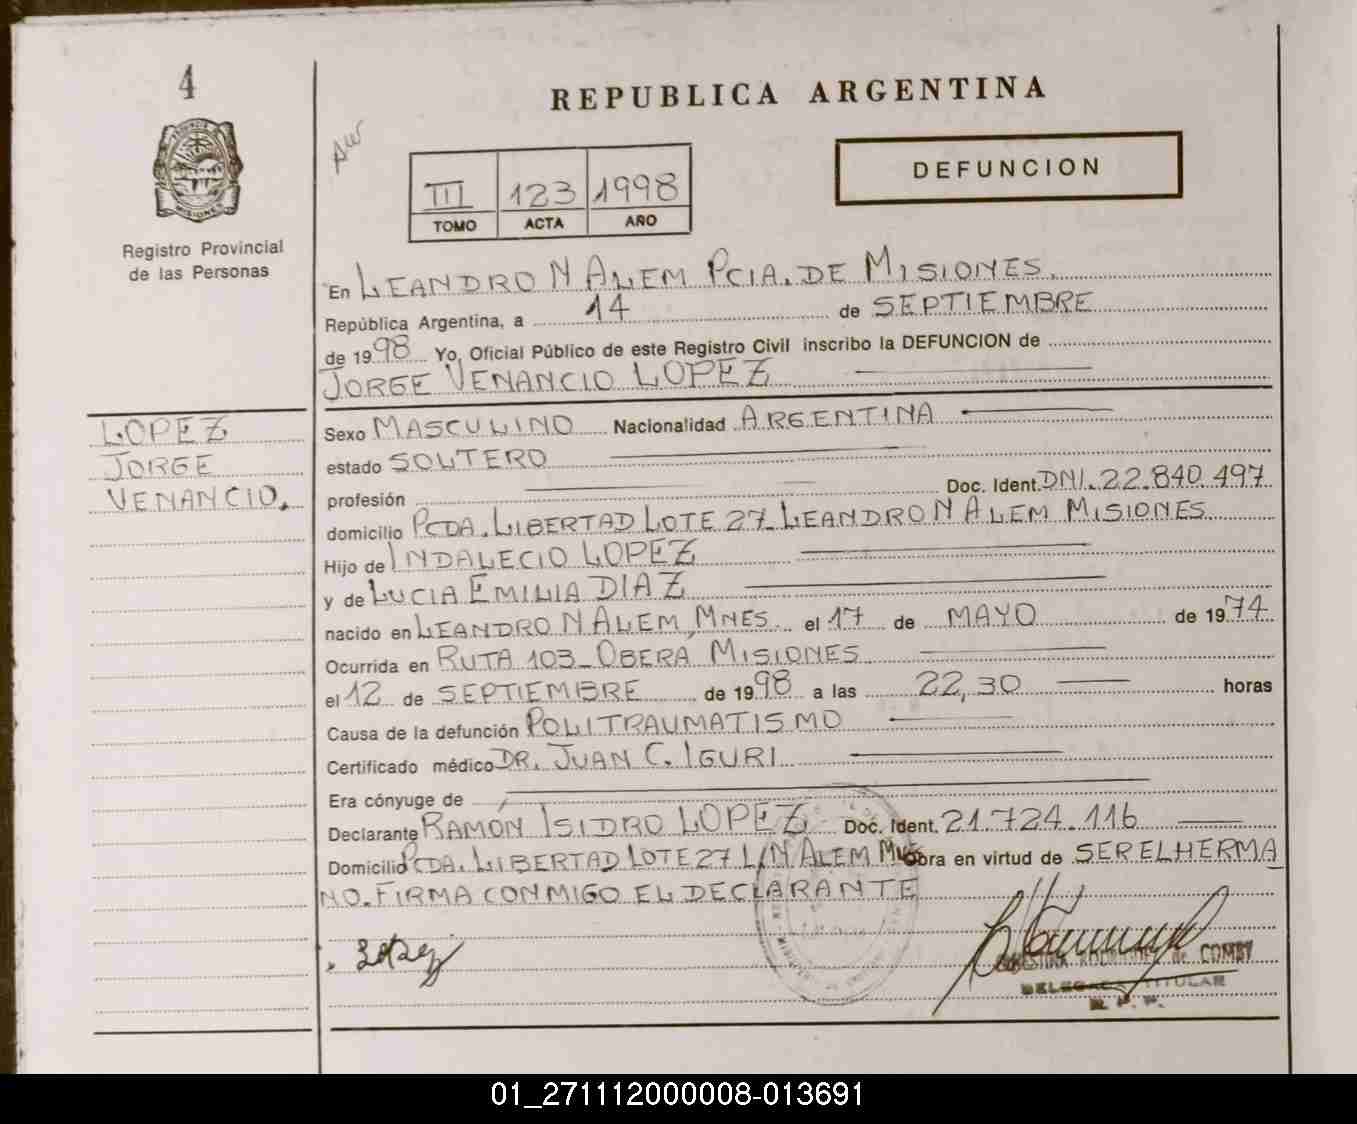 4
REPUBLICA ARGENTINA
DEFUNCION
III 123 1998
TOMO ACTA AÑO
Registro Provincial
de las Personas
En LEANDRO N ALEM PCIA. DE MISIONES.
República Argentina, a 14 de SEPTIEMBRE
de 1998 Yo, Oficial Público de este Registro Civil inscribo la DEFUNCION de
JORGE VENANCIO LOPEZ
LOPEZ
JORGE
VENANCIO.
Sexo MASCULINO Nacionalidad ARGENTINA
estado SOLTERO
profesión Doc. Ident. DNI. 22.840.497
domicilio PCDA. LIBERTAD LOTE 27_LEANDRO N ALEM MISIONES
Hijo de INDALECIO LOPEZ
y de LUCIA EMILIA DIAZ
nacido en LEANDRO N ALEM, MNES. el 17 de MAYO de 1974
Ocurrida en RUTA 103_OBERA MISIONES
el 12 de SEPTIEMBRE de 1998 a las 22,30 horas
Causa de la defunción POLITRAUMATISMO
Certificado médico DR. JUAN C. IGURI
Era cónyuge de
Declarante RAMON ISIDRO LOPEZ Doc. Ident. 21.724.116
Domicilio PCDA. LIBERTAD LOTE 27 L/N ALEM MNES Obra en virtud de SER EL HERMA_
NO. FIRMA CONMIGO EL DECLARANTE
Lopez
de COMBY
TITULAR
01_271112000008-013691